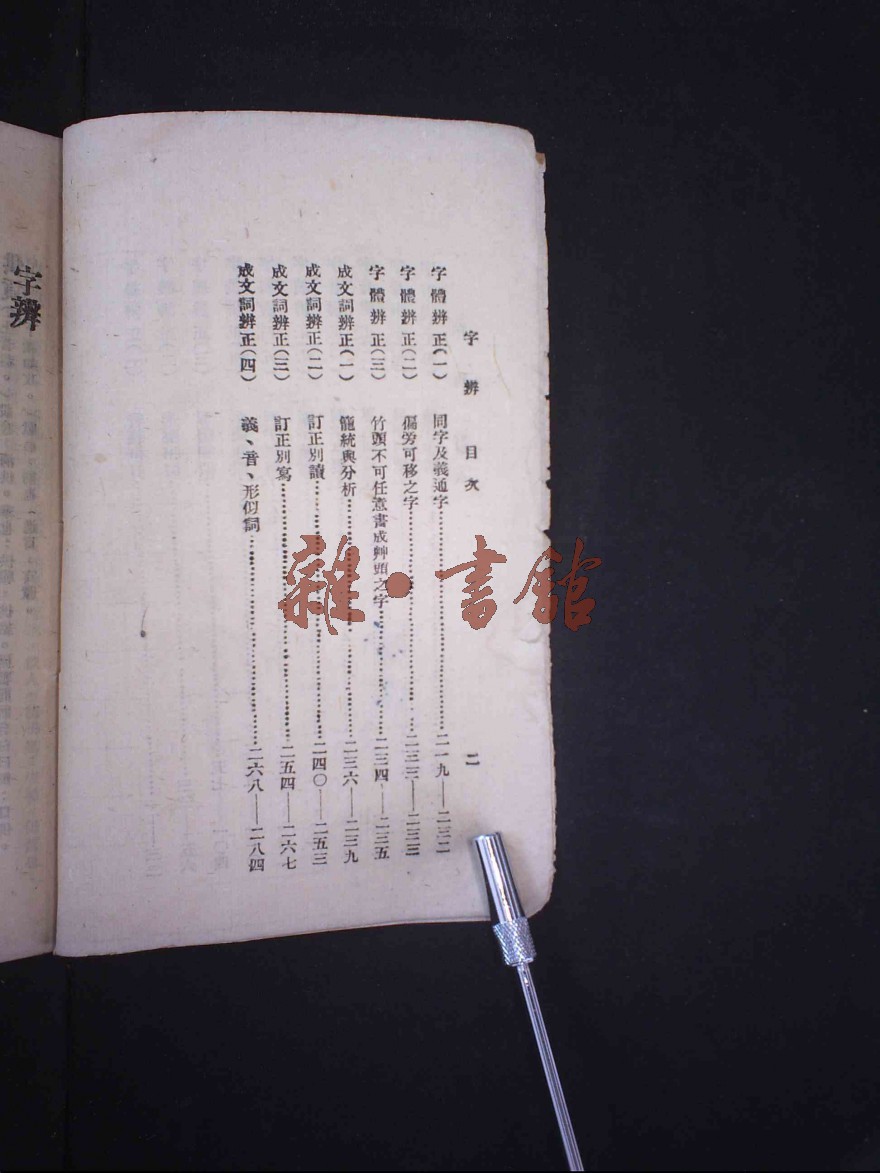 字辨 目次 二
字體辨正(一) 同字及義通字……二一九——二三二
字體辨正(二) 偏旁可移之字……二三三——二三三
字體辨正(三) 竹頭不可任意書成艸頭之字……二三四——二三五
成文詞辨正(一) 籠統與分析……二三六——二三九
成文詞辨正(二) 訂正別讀……二四〇——二五三
成文詞辨正(三) 訂正別寫……二五四——二六七
成文詞辨正(四) 義、音、形似詞……二六八——二八四
字辨
雜·書館